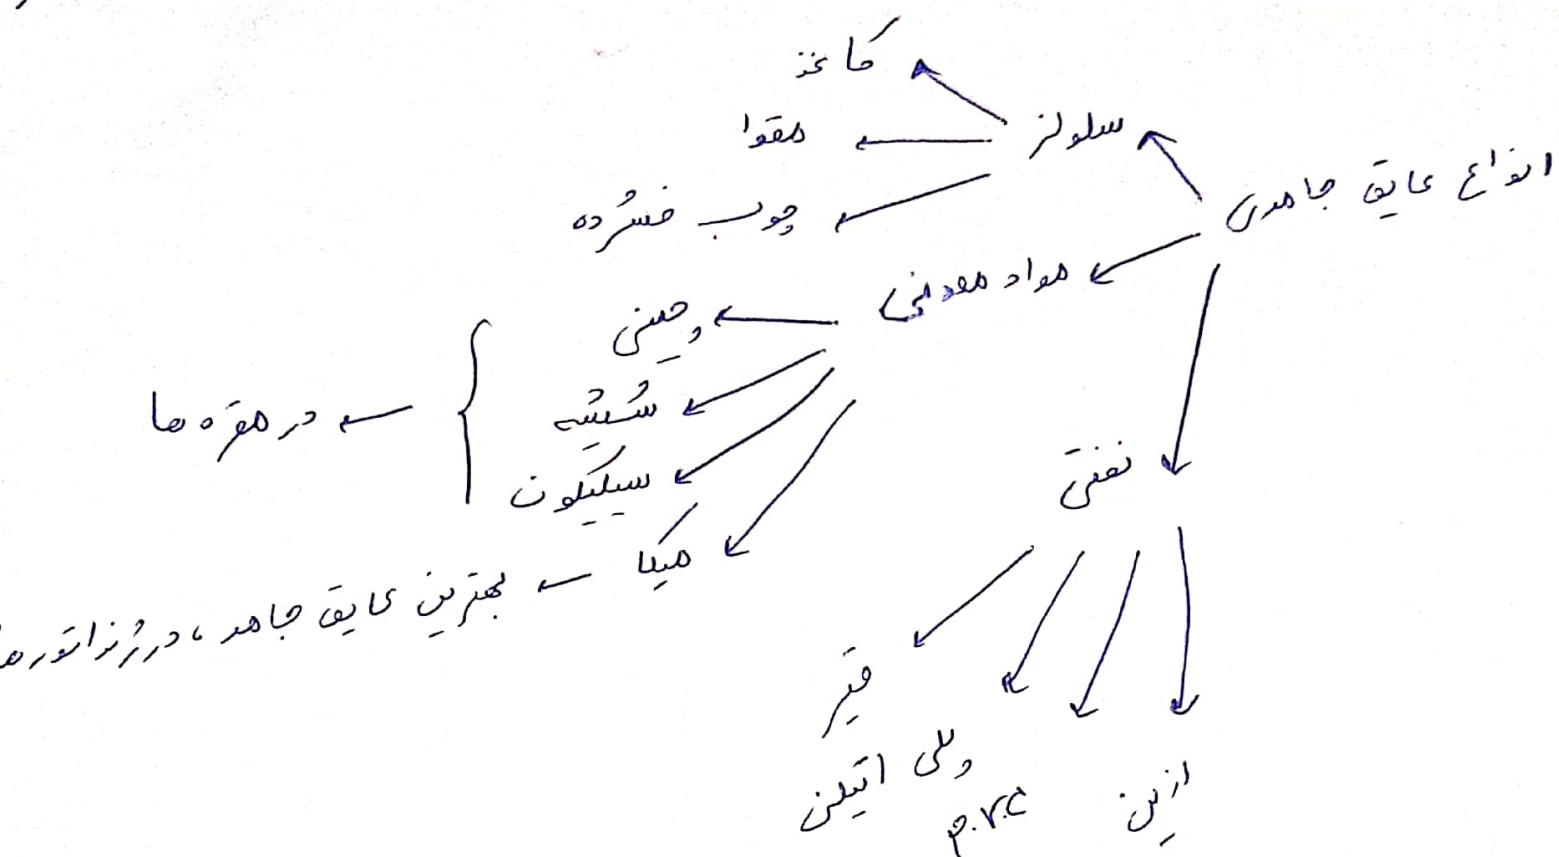 انواع عایق جامدی
سلولز
کاغذ
مقوا
چوب فشرده
مواد معدنی
چینی
شیشه
سیلیکون
در مقره ها
میکا ← بهترین عایق جامد، در ژنراتورها
نفتی
قیر
پلی اتیلن
P.V.C
ازین